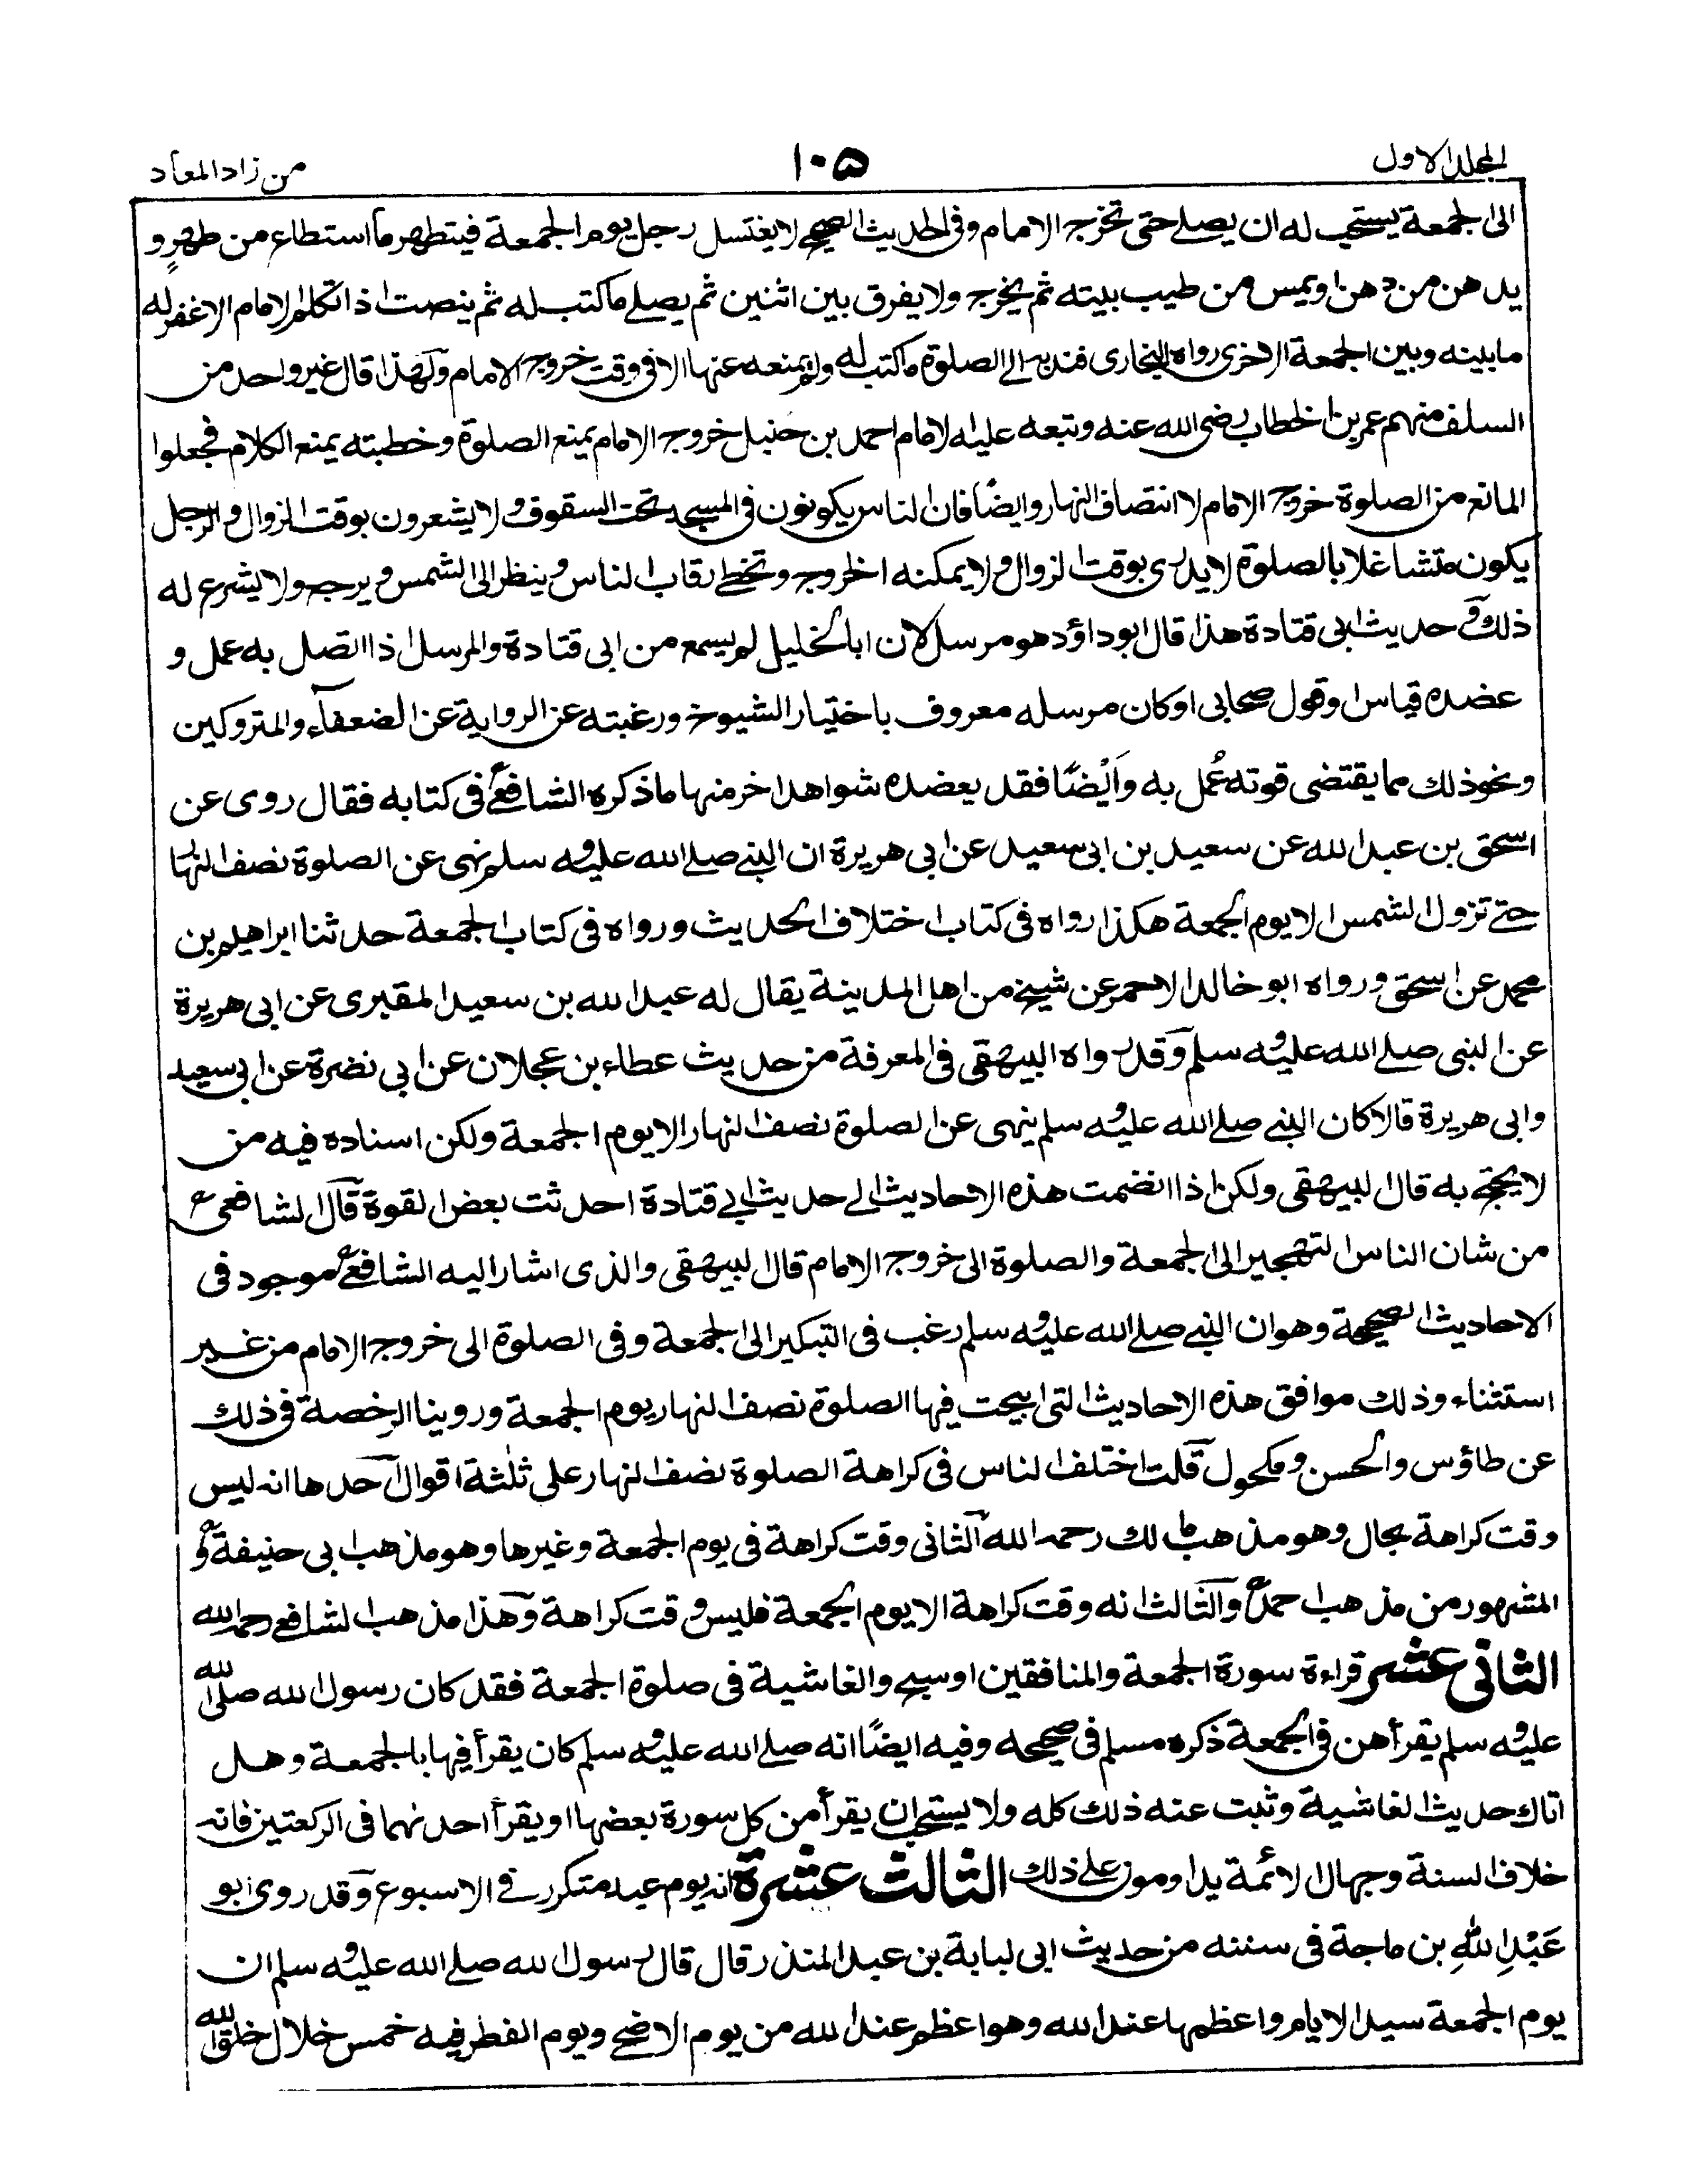 المجلد الاول
١٠٥
من زاد المعاد
الى الجمعة يستحب له ان يصلے حتى تخرج الامام وفى الحديث الصحيح لا يغتسل رجل يوم الجمعة فيتطهر ما استطاع من طهرٍ و
يدهن من دهن او يمس من طيب بيته ثم يخرج ولا يفرق بين اثنين ثم يصلے ما كتب له ثم ينصت اذا تكلم الامام الا غفر له
ما بينه وبين الجمعة الاخرى رواه البخارى فندب الے الصلوة ما كتب له ولم يمنعه عنها الا فى وقت خروج الامام ولهذا قال غير واحد من
السلف منهم عمر بن الخطاب رضى الله عنه وتبعه عليه الامام احمد بن حنبل خروج الامام يمنع الصلوة وخطبته يمنع الكلام فجعلوا
المانع من الصلوة خروج الامام لا انتصاف النهار وايضًا فان الناس يكونون فى المسجد تحت السقوف ولا يشعرون بوقت الزوال والرجل
يكون متشاغلا بالصلوة لا يدرى بوقت الزوال ولا يمكنه الخروج وتخطے رقاب الناس وينظر الى الشمس ويرجع ولا يشرع له
ذلك وحديث ابى قتادة هذا قال ابو داؤد هو مرسل لان ابا الخليل لم يسمع من ابى قتادة والمرسل اذا اتصل به عمل و
عضده قياس او قول صحابى او كان مرسله معروف باختيار الشيوخ ورغبته عن الرواية عن الضعفآء والمتروكين
ونحو ذلك مما يقتضى قوته عُمل به وَايْضًا فقد يعضده شواهد اخر منها ما ذكره الشافعىؒ فى كتابه فقال روى عن
اسحق بن عبد الله عن سعيد بن ابى سعيد عن ابى هريرة ان النبے صلے الله عليه وسلم نهى عن الصلوة نصف النهار
حتے تزول الشمس الا يوم الجمعة هكذا رواه فى كتاب اختلاف الحديث ورواه فى كتاب الجمعة حدثنا ابراهيم بن
محمد عن اسحق ورواه ابو خالد الاحمر عن شيخ من اهل المدينة يقال له عبد الله بن سعيد المقبرى عن ابى هريرة
عن النبى صلے الله عليه وسلم وقد رواه البيهقى فى المعرفة من حديث عطاء بن عجلان عن ابى نضرة عن ابى سعيد
وابى هريرة قالا كان النبے صلے الله عليه وسلم ينهى عن الصلوة نصف النهار الا يوم الجمعة ولكن اسناده فيه من
لا يحتج به قال البيهقى ولكن اذا انضمت هذه الاحاديث الے حديث ابے قتادة احدثت بعض القوة قال الشافعىؒ
من شان الناس التهجير الى الجمعة والصلوة الى خروج الامام قال البيهقى والذى اشار اليه الشافعىؒ موجود فى
الاحاديث الصحيحة وهو ان النبے صلے الله عليه وسلم رغب فى التبكير الى الجمعة وفى الصلوة الى خروج الامام من غير
استثناء وذلك موافق هذه الاحاديث التى ابيحت فيها الصلوة نصف النهار يوم الجمعة وروينا الرخصة فى ذلك
عن طاؤس والحسن ومكحول قلت اختلف الناس فى كراهة الصلوة نصف النهار على ثلٰثة اقوال احدها انه ليس
وقت كراهة بحال وهو مذهب مالك رحمه الله الثانى وقت كراهة فى يوم الجمعة وغيرها وهو مذهب ابى حنيفةؒ و
المشهور من مذهب احمدؒ والثالث انه وقت كراهة الا يوم الجمعة فليس وقت كراهة وهذا مذهب الشافعے رحمه الله
الثانى عشر قراءة سورة الجمعة والمنافقين او سبح والغاشية فى صلوة الجمعة فقد كان رسول الله صلى الله
عليه وسلم يقرأهن فى الجمعة ذكره مسلم فى صحيحه وفيه ايضًا انه صلے الله عليه وسلم كان يقرأ فيها بالجمعة وهل
اتاك حديث الغاشية وثبت عنه ذلك كله ولا يستحب ان يقرأ من كل سورة بعضها او يقرأ احدٰهما فى الركعتين فانه
خلاف السنة وجهال الائمة يداومون علے ذلك الثالث عشرة انه يوم عيد متكرر فے الاسبوع وقد روى ابو
عَبْدِ اللهِ بن ماجة فى سننه من حديث ابى لبابة بن عبد المنذر قال قال رسول الله صلے الله عليه وسلم ان
يوم الجمعة سيد الايام واعظمها عند الله وهو اعظم عند الله من يوم الاضحے ويوم الفطر فيه خمس خلال خلق الله